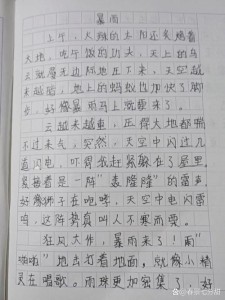 暴雨
上午,火辣的太阳还炙烤着
大地,吃午饭的功夫,天上的乌
云就层无边际地压下来,天空越
来越暗,地上的蚂蚁也加快了脚
步,好像暴雨马上就要来了。
云越来越重,压得大地都喘
不过来气,突然,天空中闪过几
道闪电,吓得我赶紧躲在了屋里,
紧接着是一阵"轰隆隆"的雷声,
好像狮子在咆哮,天空中电闪雷
鸣,这阵势真叫人不寒而栗。
狂风大作,暴雨来了!雨"
啪啪"地击打着地面,就像小精
灵在唱歌。雨珠更加密集了,好